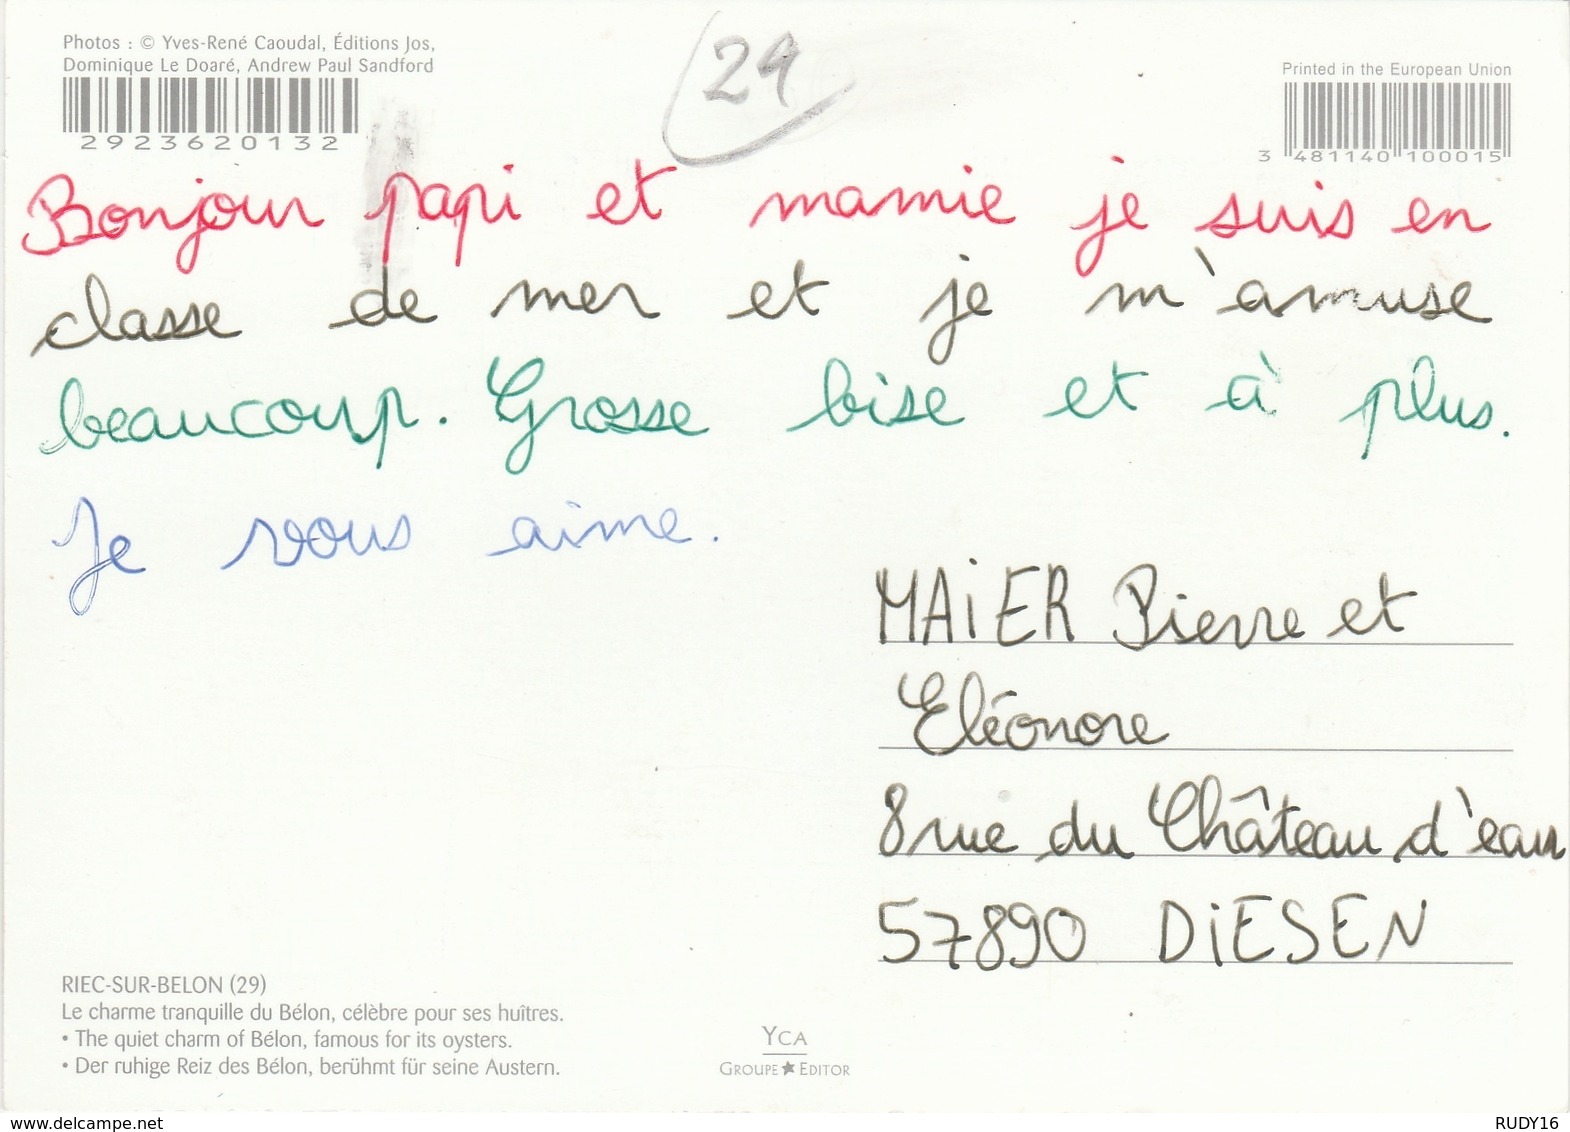 Photos : © Yves-René Caoudal, Éditions Jos,
Dominique Le Doaré, Andrew Paul Sandford
2923620132
29
Printed in the European Union
3 481140 100015
Bonjour papi et mamie je suis en
classe de mer et je m'amuse
beaucoup. Grosse bise et à plus.
Je vous aime.
MAiER Pierre et
Eléonore
8 rue du Château d'eau
57890 DiESEN
RIEC-SUR-BELON (29)
Le charme tranquille du Bélon, célèbre pour ses huîtres.
• The quiet charm of Bélon, famous for its oysters.
• Der ruhige Reiz des Bélon, berühmt für seine Austern.
YCA
GROUPE ★ EDITOR
www.delcampe.net
RUDY16